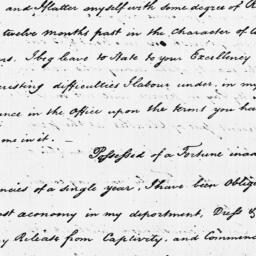 and flatter myself with some degree of
twelve months past in the Character of
I beg leave to State to your Excellency
difficulties I labour under in my
in the Office upon the terms you ha
in it.
Possessed of a Fortune inad
of a single year, I have been Oblige
st œconomy in my deportment, Dress &
Release from Captivity, and Commenc